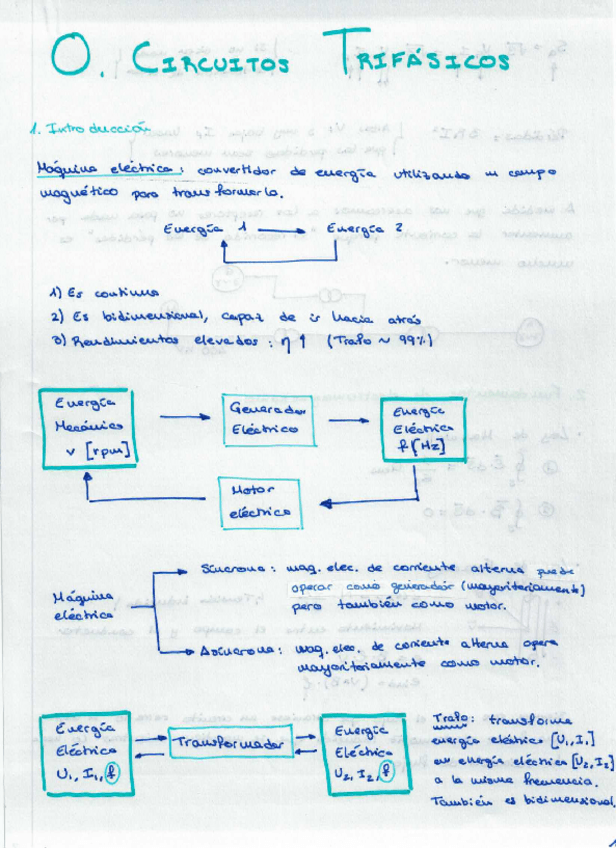 0. CIRCUITOS TRIFÁSICOS
1. Introducción
Máquina eléctrica: convertidor de energía utilizando un campo
magnético para transformarla.
Energía 1 → Energía 2
1) Es continua
2) Es bidimensional, capaz de ir hacia atrás
3) Rendimientos elevados: η ↑ (Trafo ~ 99%)
Energía
Mecánica
v [rpm]
Generador
Eléctrico
Energía
Eléctrica
f [Hz]
Motor
eléctrico
Máquina
eléctrica
Síncrona: maq. elec. de corriente alterna puede
operar como generador (mayoritariamente)
pero también como motor.
Asíncrona: maq. elec. de corriente alterna opera
mayoritariamente como motor.
Energía
Eléctrica
U1, I1, f
Transformador
Energía
Eléctrica
U2, I2, f
Trafo: transforma
energía eléctrica [U1, I1]
en energía eléctrica [U2, I2]
a la misma frecuencia.
También es bidimensional.
1